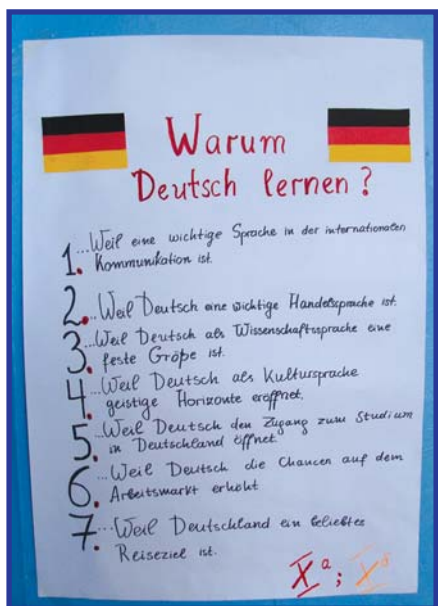 Warum
Deutsch lernen?
1. ...Weil eine wichtige Sprache in der internationalen
Kommunikation ist.
2. ...Weil Deutsch eine wichtige Handelssprache ist.
3. ...Weil Deutsch als Wissenschaftssprache eine
feste Größe ist.
4. ...Weil Deutsch als Kultursprache
geistige Horizonte eröffnet.
5. ...Weil Deutsch den Zugang zum Studium
in Deutschland öffnet.
6. ...Weil Deutsch die Chancen auf dem
Arbeitsmarkt erhöht
7. ...Weil Deutschland ein beliebtes
Reiseziel ist.